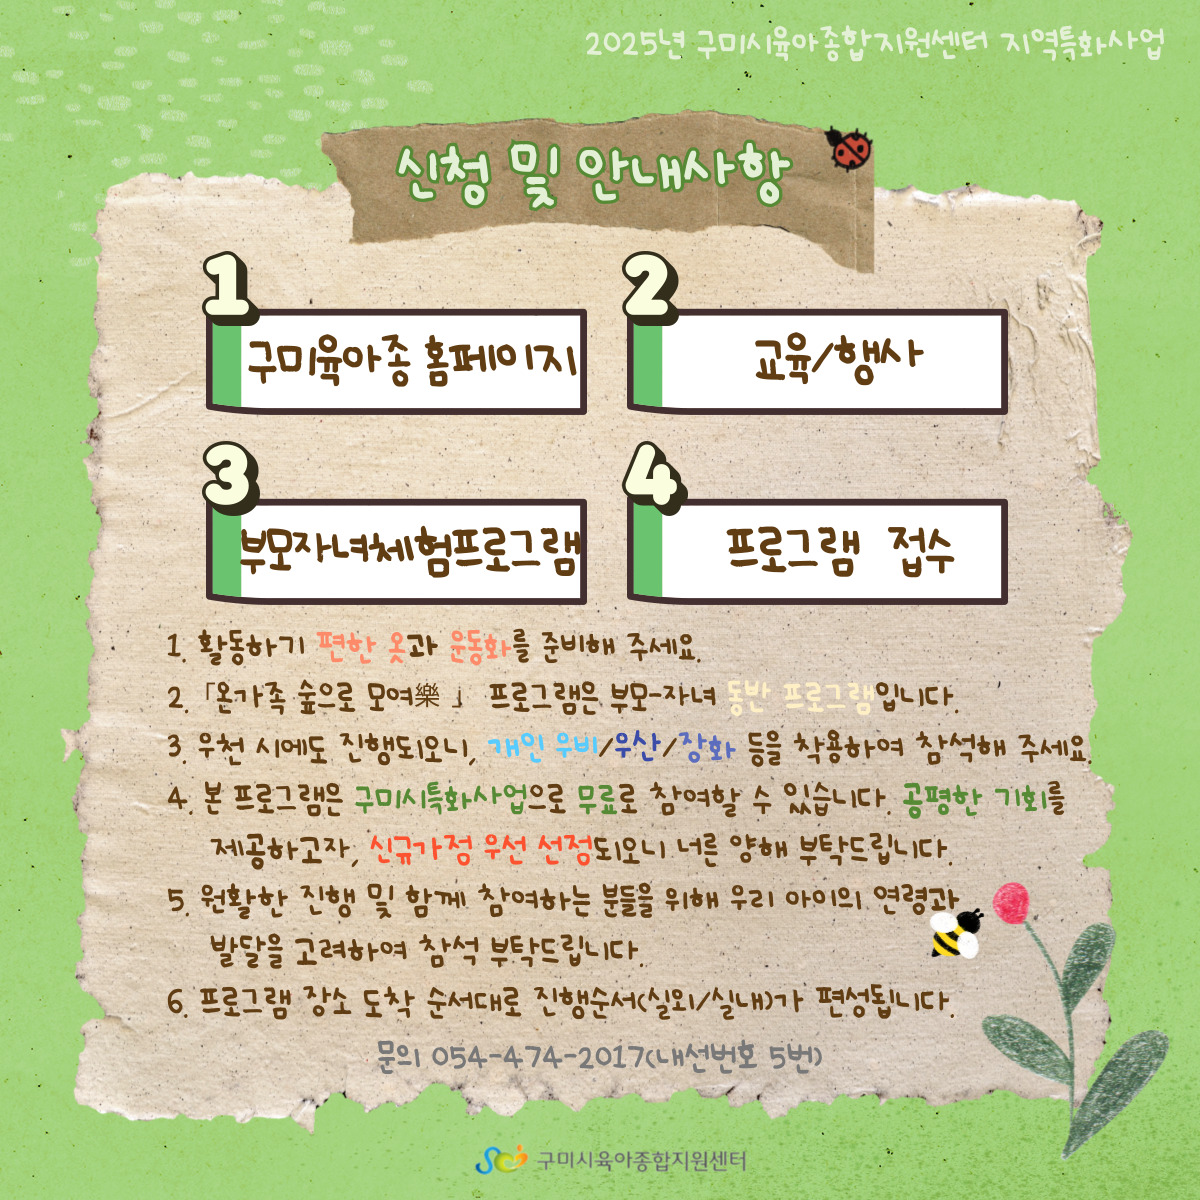 2025년 구미시육아종합지원센터 지역특화사업
신청 및 안내사항
1
구미육아종 홈페이지
2
교육/행사
3
부모자녀체험프로그램
4
프로그램 접수
1. 활동하기 편한 옷과 운동화를 준비해 주세요.
2. 「온가족 숲으로 모여樂 」 프로그램은 부모-자녀 동반 프로그램입니다.
3. 우천 시에도 진행되오니, 개인 우비/우산/장화 등을 착용하여 참석해 주세요.
4. 본 프로그램은 구미시특화사업으로 무료로 참여할 수 있습니다. 공평한 기회를
제공하고자, 신규가정 우선 선정되오니 너른 양해 부탁드립니다.
5. 원활한 진행 및 함께 참여하는 분들을 위해 우리 아이의 연령과
발달을 고려하여 참석 부탁드립니다.
6. 프로그램 장소 도착 순서대로 진행순서(실외/실내)가 편성됩니다.
문의 054-474-2017(내선번호 5번)
구미시육아종합지원센터